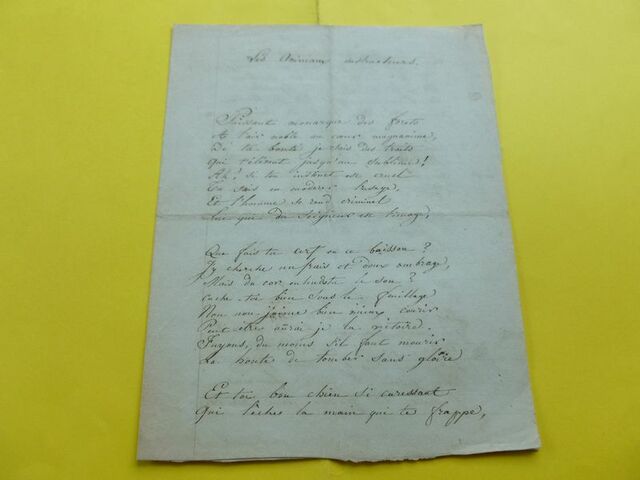 Les Animaux instructeurs.
Puissant monarque des forêts
A l'air noble au cœur magnanime,
De ta bonté je sais des traits
Qui s'élèvent jusqu'au sublime!
Ah! si ton instinct est cruel
Tu sais en modérer l'usage,
Et l'homme se rend criminel
Lui que du Seigneur est l'image,
Que fais tu cerf en ce buisson?
J'y cherche un frais et doux ombrage,
Mais du cor entends-tu le son?
cache-toi bien sous le feuillage
Non non j'aime bien mieux courir
Peut être aurai je la victoire.
Fuyons, du moins s'il faut mourir
La honte de tomber sans gloire
Et toi bon chien si caressant
Qui lèches la main qui te frappe,